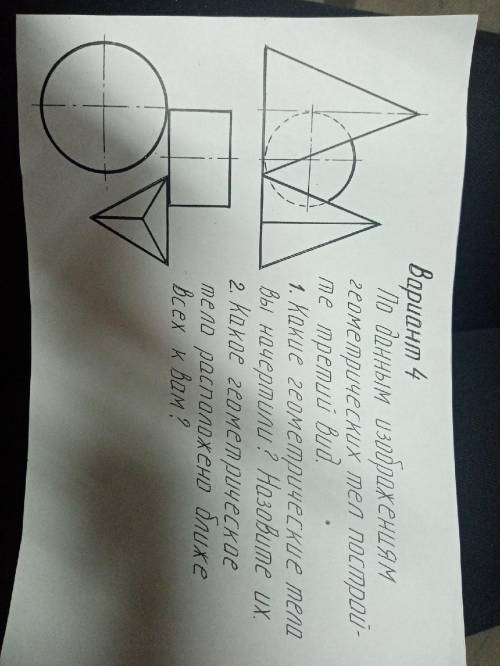 Вариант 4
По данным изображениям
геометрических тел построй-
те третий вид.
1. Какие геометрические тела
вы начертили? Назовите их.
2. Какое геометрическое
тело расположено ближе
всех к вам?